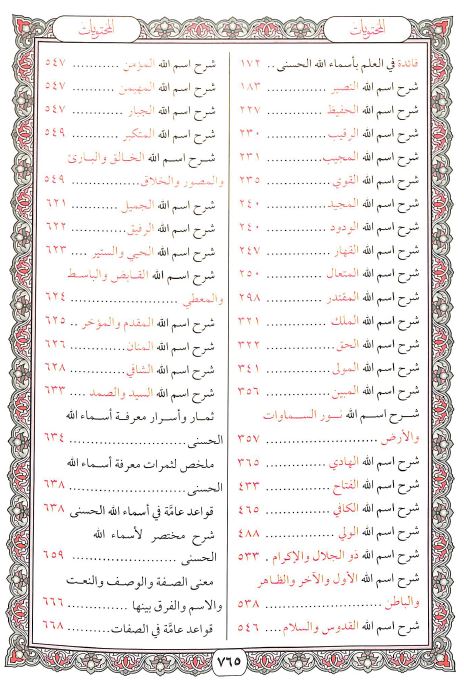 المحتويات
المحتويات
فائدة في العلم بأسماء الله الحسنى .. ١٧٢
شرح اسم الله النصير ............ ١٨٣
شرح اسم الله الحفيظ ............ ٢٢٧
شرح اسم الله الرقيب ............ ٢٣٠
شرح اسم الله المجيب ............ ٢٣١
شرح اسم الله القوي ............ ٢٣٥
شرح اسم الله المجيد ............ ٢٤٠
شرح اسم الله الودود ............ ٢٤٠
شرح اسم الله القهار ............ ٢٤٧
شرح اسم الله المتعال ............ ٢٥٠
شرح اسم الله المقتدر ............ ٢٩٨
شرح اسم الله الملك ............ ٣٢١
شرح اسم الله الحق ............ ٣٢٢
شرح اسم الله المولى ............ ٣٤١
شرح اسم الله المبين ............ ٣٥٦
شرح اسم الله نور السماوات
والأرض ............ ٣٥٧
شرح اسم الله الهادي ............ ٣٦٥
شرح اسم الله الفتاح ............ ٤٣٣
شرح اسم الله الكافي ............ ٤٦٥
شرح اسم الله الولي ............ ٤٨٨
شرح اسم الله ذو الجلال والإكرام . ٥٣٣
شرح اسم الله الأول والآخر والظاهر
والباطن ............ ٥٣٨
شرح اسم الله القدوس والسلام ... ٥٤٦
شرح اسم الله المؤمن ............ ٥٤٧
شرح اسم الله المهيمن ............ ٥٤٧
شرح اسم الله الجبار ............ ٥٤٧
شرح اسم الله المتكبر ............ ٥٤٩
شرح اسم الله الخالق والبارئ
والمصور والخلاق ............ ٥٤٩
شرح اسم الله الجميل ............ ٦٢١
شرح اسم الله الرفيق ............ ٦٢٢
شرح اسم الله الحيي والستير .... ٦٢٣
شرح اسم الله القابض والباسط
والمعطي ............ ٦٢٤
شرح اسم الله المقدم والمؤخر .. ٦٢٥
شرح اسم الله المنان ............ ٦٢٦
شرح اسم الله الشافي ............ ٦٢٨
شرح اسم الله السيد والصمد .... ٦٣٣
ثمار وأسرار معرفة أسماء الله
الحسنى ............ ٦٣٤
ملخص لثمرات معرفة أسماء الله
الحسنى ............ ٦٣٨
قواعد عامَّة في أسماء الله الحسنى ٦٣٨
شرح مختصر لأسماء الله
الحسنى ............ ٦٥٩
معنى الصفة والوصف والنعت
والاسم والفرق بينها ............ ٦٦٦
قواعد عامة في الصفات ............ ٦٦٨
٧٦٥